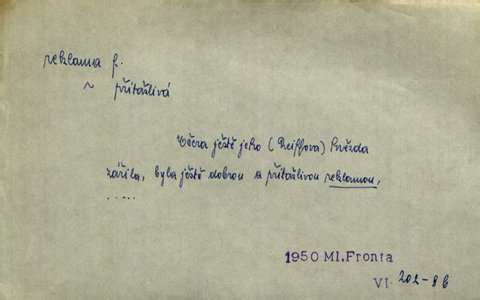 reklama f.
~ přitažlivá
Včera ještě jeho (Reiffova) hvězda
zářila, byla ještě dobrou a přitažlivou reklamou,
.....
1950 Ml. Fronta
VI. 202-8b